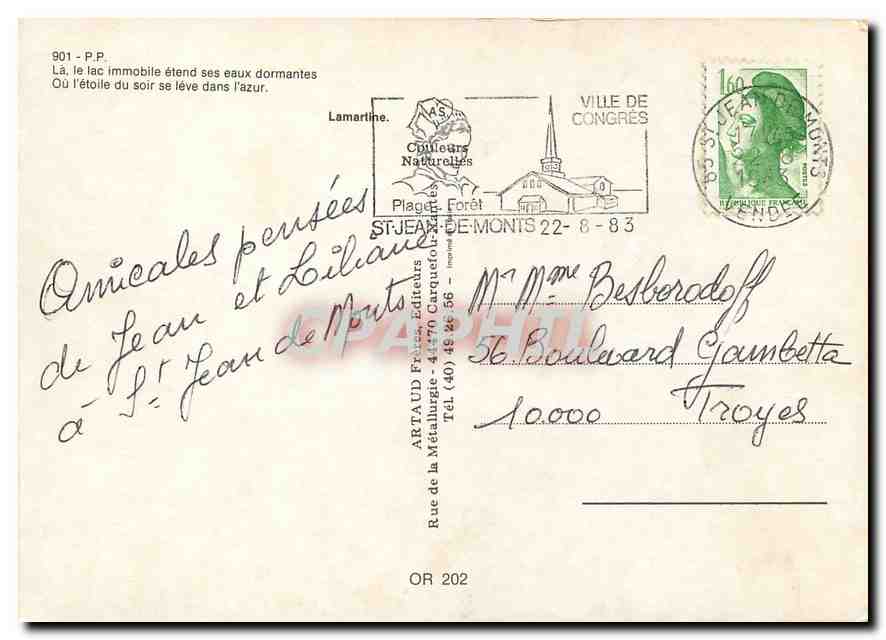 901 - P.P.
Là, le lac immobile étend ses eaux dormantes
Où l'étoile du soir se léve dans l'azur.
Lamartine.
A.S.
Couleurs
Naturelles
Plage - Forêt
VILLE DE
CONGRÈS
ST-JEAN-DE-MONTS 22-8-83
1,60
85 ST JEAN DE MONTS
VENDEE
POSTES
REPUBLIQUE FRANÇAISE
Amicales pensées
de Jean et Liliane
à St Jean de Monts
Mr Mme Besborodoff
56 Boulevard Gambetta
10.000 Troyes
ARTAUD Frères, Editeurs
Rue de la Métallurgie - 44470 Carquefou-Nantes
Tél. (40) 49 26 56 - Imprimé
CPAPHIL
OR 202